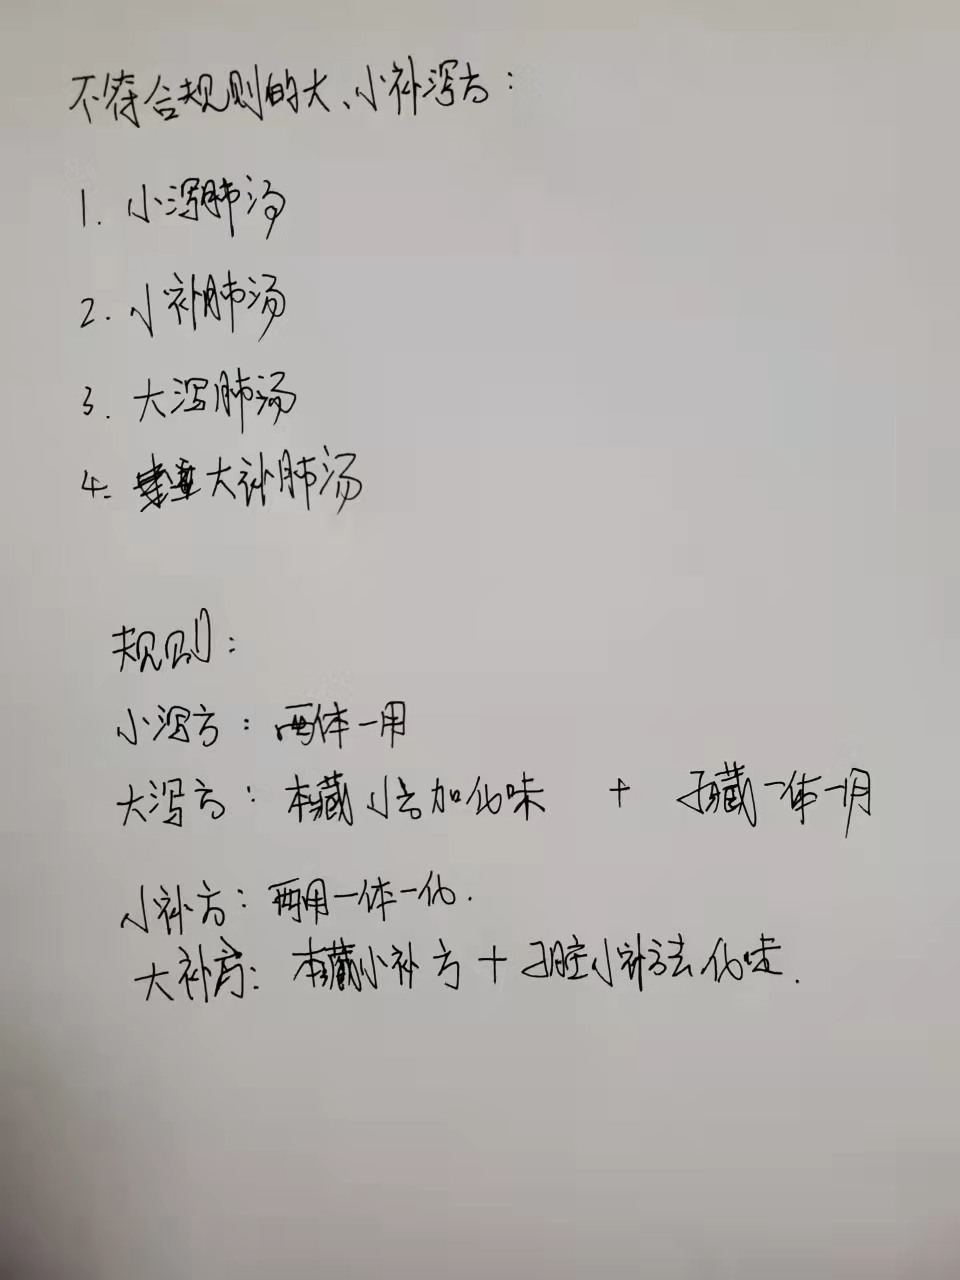 不符合规则的大、小补泻方：
1. 小泻肺汤
2. 小补肺汤
3. 大泻肺汤
4. 大补肺汤
规则：
小泻方：两体一用
大泻方：本藏小方加化味 + 子藏一体一用
小补方：两用一体一化.
大补方：本藏小补方+子脏小补方去化味.